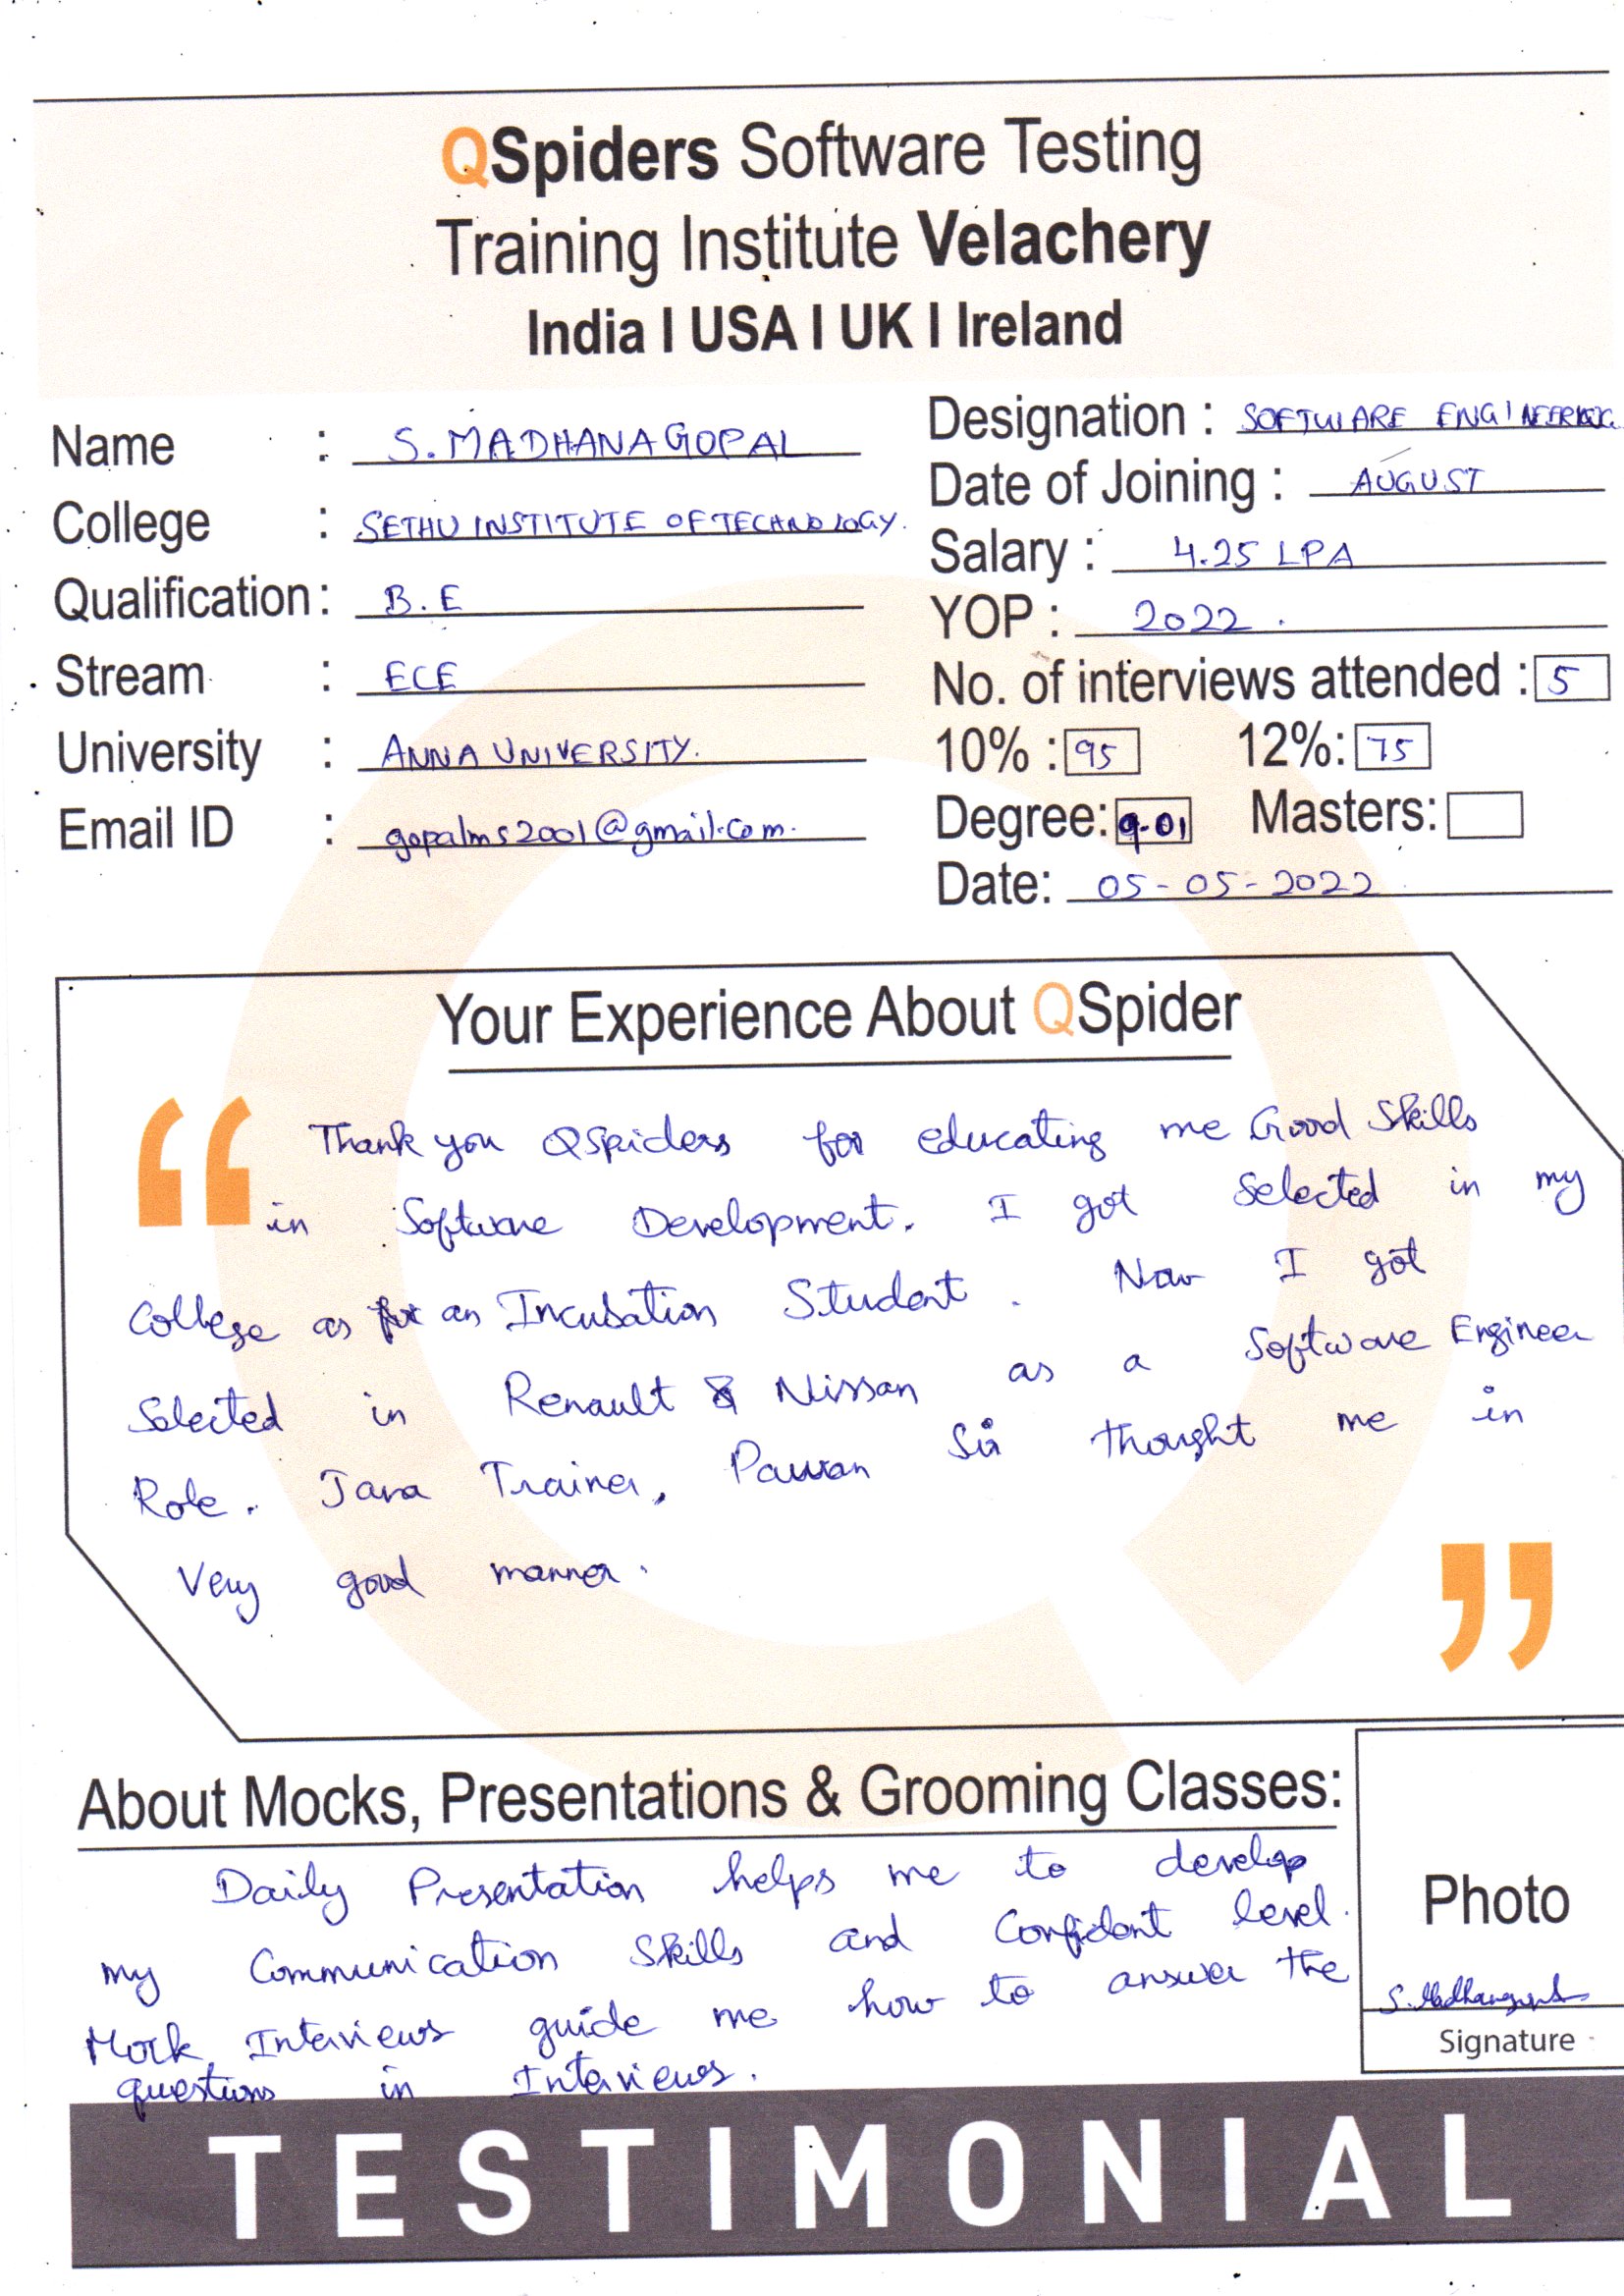 QSpiders Software Testing
Training Institute Velachery
India I USA I UK I Ireland
Name : S. MADHANA GOPAL
College : SETHU INSTITUTE OF TECHNOLOGY.
Qualification : B.E
Stream : ECE
University : ANNA UNIVERSITY.
Email ID : gopalms2001@gmail.com.
Designation : SOFTWARE ENGINEERING.
Date of Joining : AUGUST
Salary : 4.25 LPA
YOP : 2022.
No. of interviews attended : 5
10% : 95 12%: 75
Degree: 9.01 Masters:
Date: 05-05-2022
Your Experience About QSpider
“ Thank you QSpiders for educating me Good Skills
in Software Development. I got Selected in my
College as for an Incubation Student. Now I got
Selected in Renault & Nissan as a Software Engineer
Role. Java Trainer, Pawan Sir thought me in
Very good manner. ”
About Mocks, Presentations & Grooming Classes:
Daily Presentation helps me to develop
my Communication Skills and Confident level.
Mock Interviews guide me how to answer the
questions in Interviews.
Photo
S. Madhanagopal
Signature
TESTIMONIAL